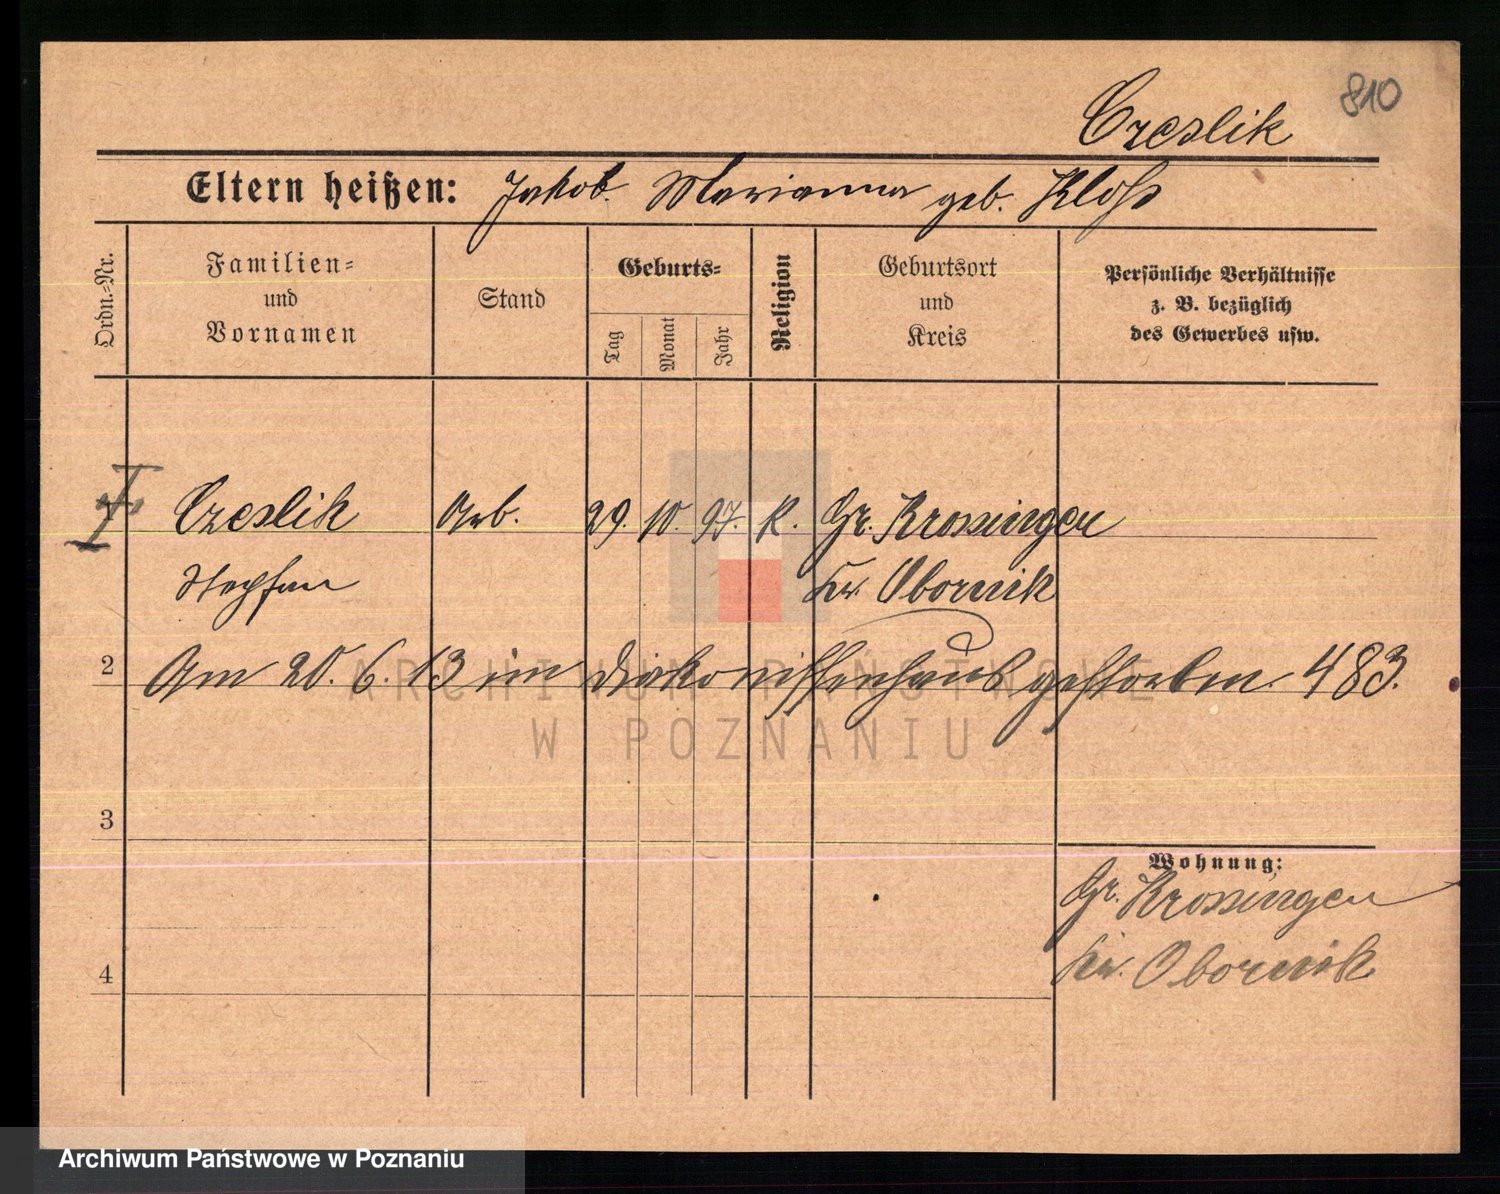 810
Czeslik
Eltern heißen: Jakob. Marianna geb. Kloß
Ordn.-Nr.
Familien-
und
Vornamen
Stand
Geburts-
Tag
Monat
Jahr
Religion
Geburtsort
und
Kreis
Persönliche Verhältnisse
z. B. bezüglich
des Gewerbes usw.
Czeslik Arb. 29. 10. 97. K. Gr. Krossingen
Stephan Kr. Obornik
2 Am 20. 6. 13 im Diakonissenhaus gestorben. 483.
3
4
Wohnung:
Gr. Krossingen
Kr. Obornik
ARCHIWUM PAŃSTWOWE
W POZNANIU
Archiwum Państwowe w Poznaniu